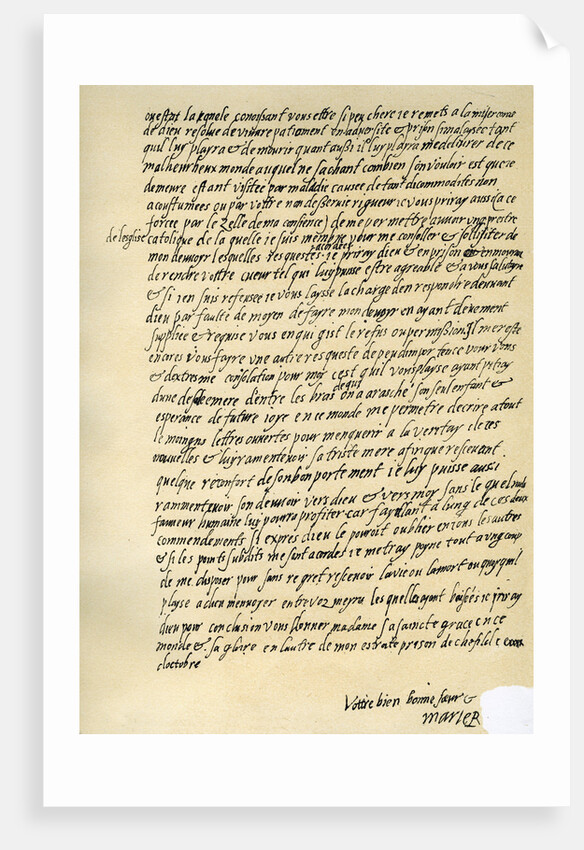 ou estat la quele conoissant vous estre si peu chere ie remets a la misericorde
de dieu resolue de viuure patiamment en aduersite & prison si malaysee tant
quil luy playra & de mourir quant aussi il luy playra me deliurer de ce
malheurheux monde auquel ne sachant combien son vouloir est que ie
demeure estant visitee par maladie causee de tant dicommodites non
acoustumees ou par vottre non deseruie rigueur ie vous priray aussi (a ce
forcee par le Zelle de ma consience) de me permettre auuoir ung prestre
de lesglise catolique de la quelle ie suis membre pour me consoller & sollisiter de
mon deuuoyr lesquelles requestes acordees ie priray dieu & en prison & en mourant
de rendre vottre cueur tel qui luy puisse estre agreable & a vous salutayre
& si ien suis refusee ie vous laysse la charge den respondre deuuant
dieu par faulte de moyen de fayre mon deuuoyr en ayant deuement
supplie & requise vous en qui gist le refus ou permission. Il me reste
encores vous fayre une autre resqueste de peu dimportence pour vous
& dextresme consolation pour moy cest quil vous playse ayant pitay
dune desolee mere dentre les bras de qui on a arasche son seul enfant &
esperance de future ioye en ce monde me permetre decrire a tout
le moings lettres ouuertes pour menquerir a la veritay de ces
nouuelles & luy ramenteuoir sa triste mere afin que resceuant
quelque reconfort de son bon portement ie luy puisse aussi
ramenteuoir son deuuoir vers dieu & vers moy sans le quel nulle
faueur humaine luy pourra profiter car fayllant a lung de ces deux
commendements si expres dieu le pouroit oublier en tous les autres
& si les points subdits me sont acordes ie metray poyne tout a ung coup
de me disposer pour sans regret rescevoir la vie ou la mort ou quoy quil
playse a dieu menuoyer entre voz meyns les quelles ayant baisées ie priray
dieu pour conclusion vous donner madame sa saincte grace en ce
monde & sa gloire en lautre de mon estroite prison de chefild ce
doctobre
Vottre bien bonne sœur &
MARIE R